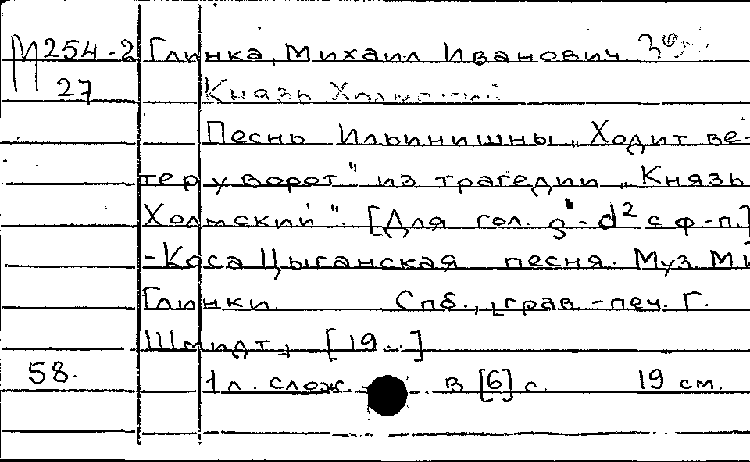 М254-2 Глинка, Михаил Иванович
27 Князь Холмский
Песнь Ильинишны „Ходит ве-
тер у ворот" из трагедии „Князь
Холмский". [Для гол. g"-d² с ф-п.]
-Коса Цыганская песня. Муз. Ми
Глинки Спб., грав.-печ. Г.
Шмидт, [19..]
58. 1 л. слож. в [6] с. 19 см.